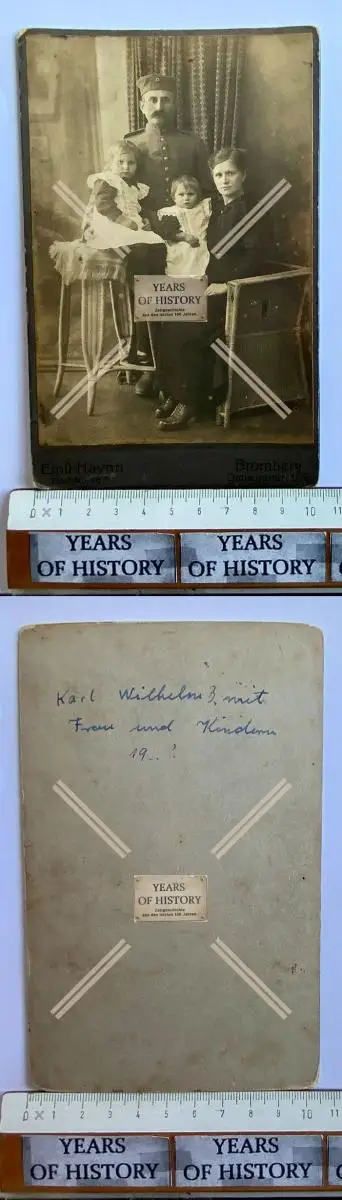 YEARS
OF HISTORY
Zeitgeschichte
aus den letzten 100 Jahren
Emil Haynn
Bromberg
0 1 2 3 4 5 6 7 8 9 10 11
YEARS
OF HISTORY
YEARS
OF HISTORY
Karl Wilhelm 3. mit
Frau und Kindern
19..?
YEARS
OF HISTORY
Zeitgeschichte
aus den letzten 100 Jahren
0 1 2 3 4 5 6 7 8 9 10 11
YEARS
OF HISTORY
YEARS
OF HISTORY